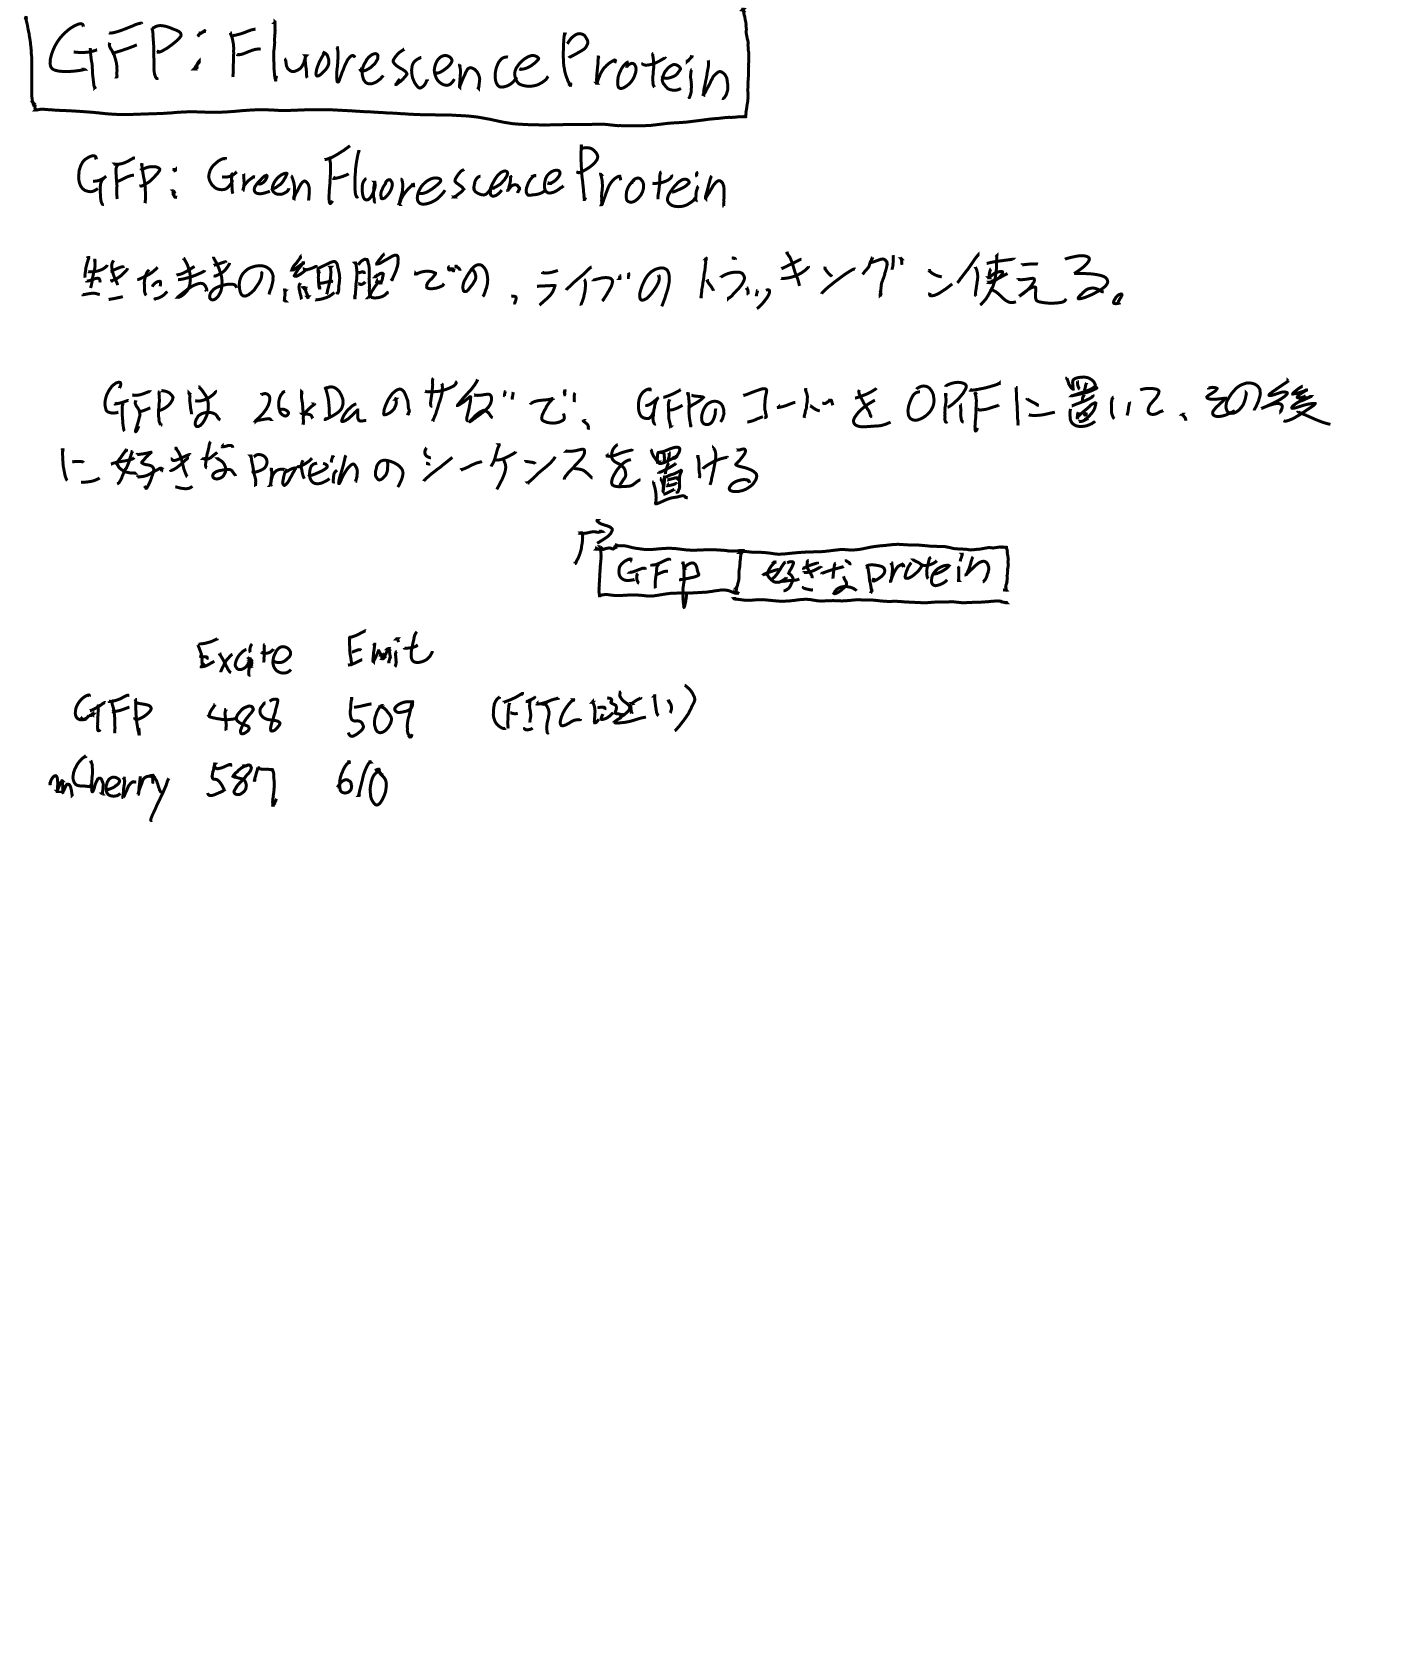 GFP: Fluorescence Protein
GFP: Green Fluorescence Protein
生きたままの細胞での、ライブのトラッキングン使える。
GFPは 26kDaのサイズで、GFPのコードをORFに置いて、その後
に好きなProteinのシーケンスを置ける
GFP 好きなprotein
Excite Emit
GFP 488 509 (FITCに近い)
mCherry 587 610